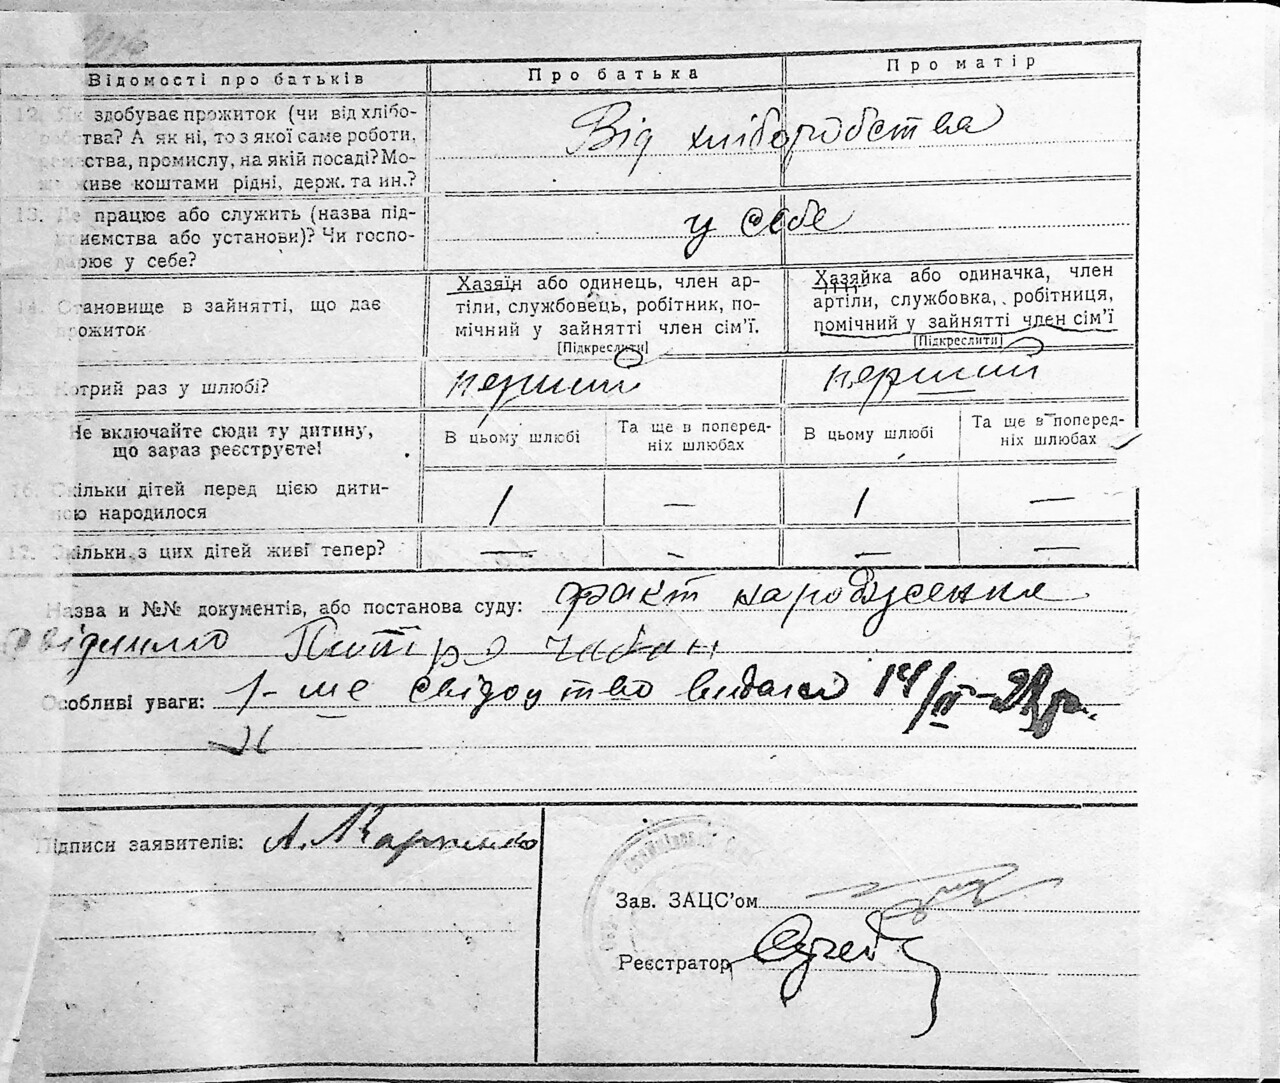 Відомості про батьків
Про батька
Про матір
12. Як здобуває прожиток (чи від хлібо-
робства? А як ні, то з якої саме роботи,
ремества, промислу, на якій посаді? Мо-
же живе коштами рідні, держ. та ин.?
Від хліборобства
13. Де працює або служить (назва під-
приємства або установи)? Чи госпо-
дарює у себе?
у себе
14. Становище в зайнятті, що дає
прожиток
Хазяїн або одинець, член ар-
тіли, службовець, робітник, по-
мічний у зайнятті член сім'ї.
[Підкреслити]
Хазяйка або одиначка, член
артіли, службовка, робітниця,
помічний у зайнятті член сім'ї
[Підкреслити]
15. Котрий раз у шлюбі?
перший
перший
Не включайте сюди ту дитину,
що зараз реєструєте!
В цьому шлюбі
Та ще в поперед-
ніх шлюбах
В цьому шлюбі
Та ще в поперед-
ніх шлюбах
16. Скільки дітей перед цією дити-
ною народилося
1 — 1 —
17. Скільки з цих дітей живі тепер?
— — — —
Назва и №№ документів, або постанова суду: факт народження
Особливі уваги: 1-ше свідоцтво видано 14/
Підписи заявителів: А. Карпенко
Зав. ЗАЦС'ом
Реєстратор